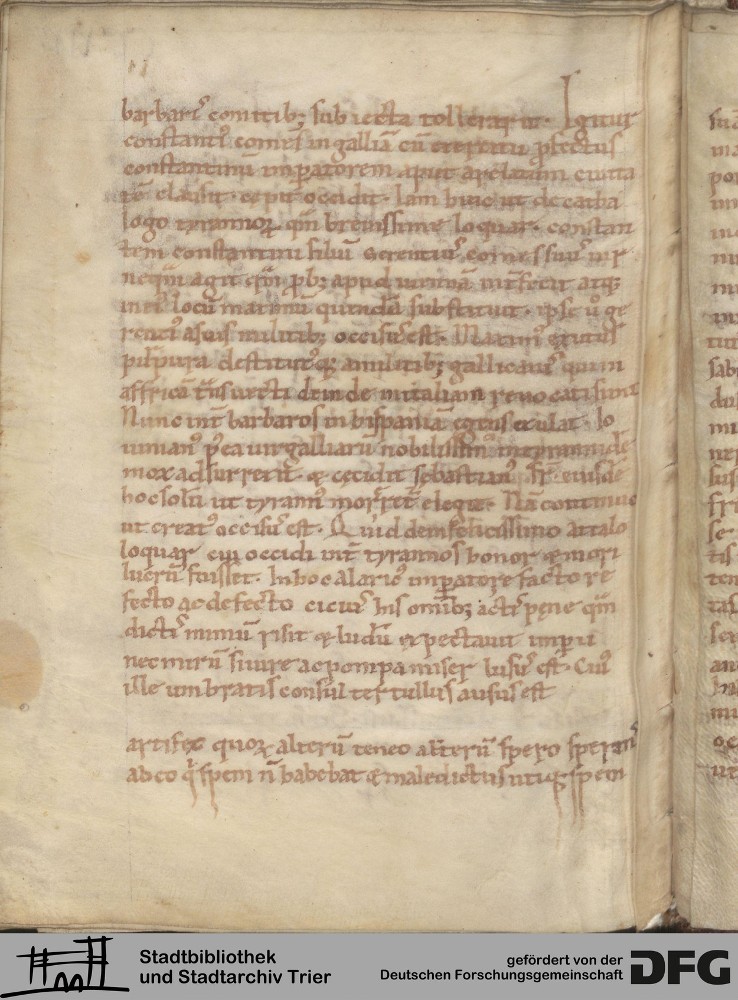 barbarꝭ comitib; subiecta tollerar̄ et. Igitur
constanti᷒ comes in galliā cū exercitu ꝓfectus
constantinū imꝑatorem aput arelatam ciuita
tē clausit. cepit occidit. Iam hinc ut de catha
logo tyrannoꝝ qm̄ breuissime loquar. constan
tem constantini filiū gerenti᷒ comes suus uir
neqm̄ agit qm̄ ꝓb; apud uiennā int̄fecit atq;
in ei᷒ locū maximū quendā substituit. ipse ū ge
renti᷒ a suis militib; occisus est. Maxim᷒ exutus
purpura destitutusq; a militib; gallicanis qui in
affricā t̄nsuecti deinde in italiam reuocati sunt
Nunc int̄ barbaros in hispania egens exulat. Io
uinian᷒ p̄ea uir galliarū nobilissim᷒ in tyrannidē
mox adsurrexit. & cecidit sebastian᷒ fr̄ eiusdē
hoc solū ut tyrann᷒ morēret elegit. Nā continuo
ut creat᷒ occisus est. Quid de infelicissimo attalo
loquar cui occidi int̄ tyrannos honor & mori
lucrū fuisset. In hoc alaric᷒ imꝑatore facto re
fecto ac defecto cicius his omīb; actis pęne qm̄
dictis mimū risit & ludū expectauit imꝑii
nec mirū si iure ac pompa miser lusus est. Cui᷒
ille umbratis consul tertullus ausus est
artifex quoꝝ alterū teneo alterū spero sperans
ab eo q̄ spem n̄ habebat & maledictus utiq; spem
Stadtbibliothek
und Stadtarchiv Trier
gefördert von der
Deutschen Forschungsgemeinschaft
DFG